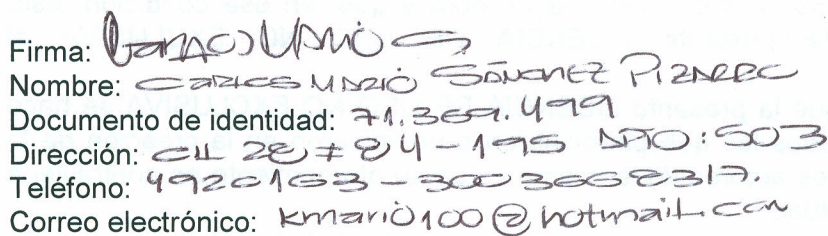 Firma: Carlos Mario S
Nombre: Carlos Mario Sánchez Pizarro
Documento de identidad: 71.369.499
Dirección: Cll 28 # 84-195 Apto: 503
Teléfono: 4920163 - 3003668317.
Correo electrónico: kmario100@hotmail.com